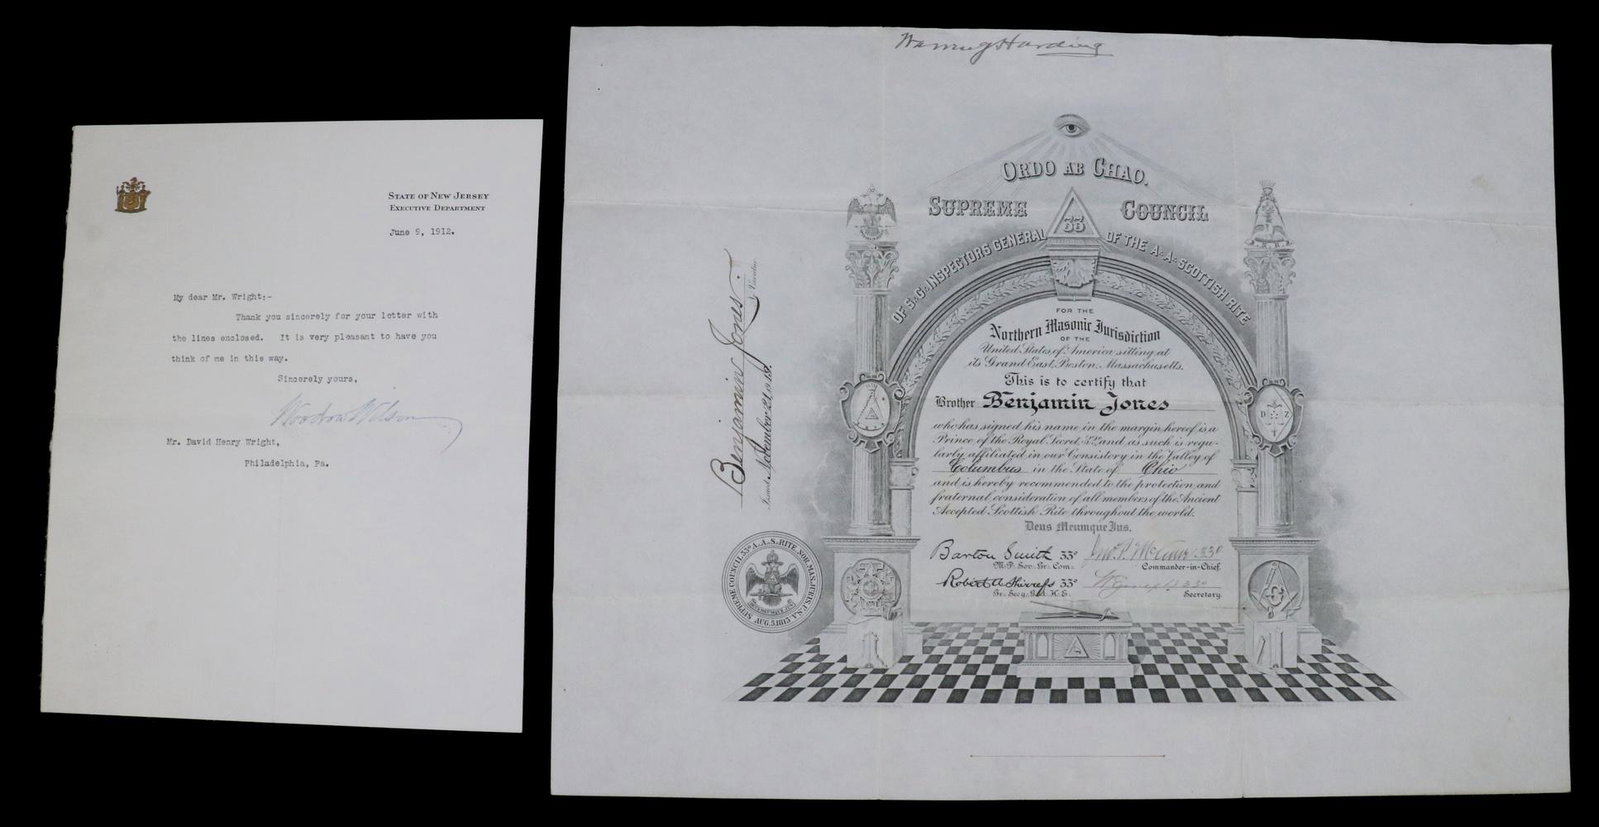 STATE OF NEW JERSEY
EXECUTIVE DEPARTMENT
June 9, 1912.
My dear Mr. Wright:-
Thank you sincerely for your letter with
the lines enclosed. It is very pleasant to have you
think of me in this way.
Sincerely yours,
Woodrow Wilson
Mr. David Henry Wright,
Philadelphia, Pa.
Warren G Harding
ORDO AB CHAO.
SUPREME COUNCIL
33
OF S∴G∴ INSPECTORS GENERAL OF THE A∴A∴ SCOTTISH RITE
FOR THE
Northern Masonic Jurisdiction
OF THE
United States of America sitting at
its Grand East, Boston, Massachusetts.
This is to certify that
Brother Benjamin Jones
who has signed his name in the margin hereof is a
Prince of the Royal Secret, 32° and as such is regu-
larly affiliated in our Consistory in the Valley of
Columbus in the State of Ohio
and is hereby recommended to the protection and
fraternal consideration of all members of the Ancient
Accepted Scottish Rite throughout the world.
Deus Meumque Jus.
Barton Smith 33°
M∴P∴ Sov∴ Gr∴ Com∴
33°
Commander-in-Chief.
Robert A Shirrefs 33°
Gr∴ Sec'y Gen∴ H∴E∴
33°
Secretary.
Benjamin Jones
Ne Varietur
D Z
SUPREME COUNCIL 33° A∴A∴S∴RITE NOR∴MAS∴JURIS∴U∴S∴A∴
AUG. 5. 1813